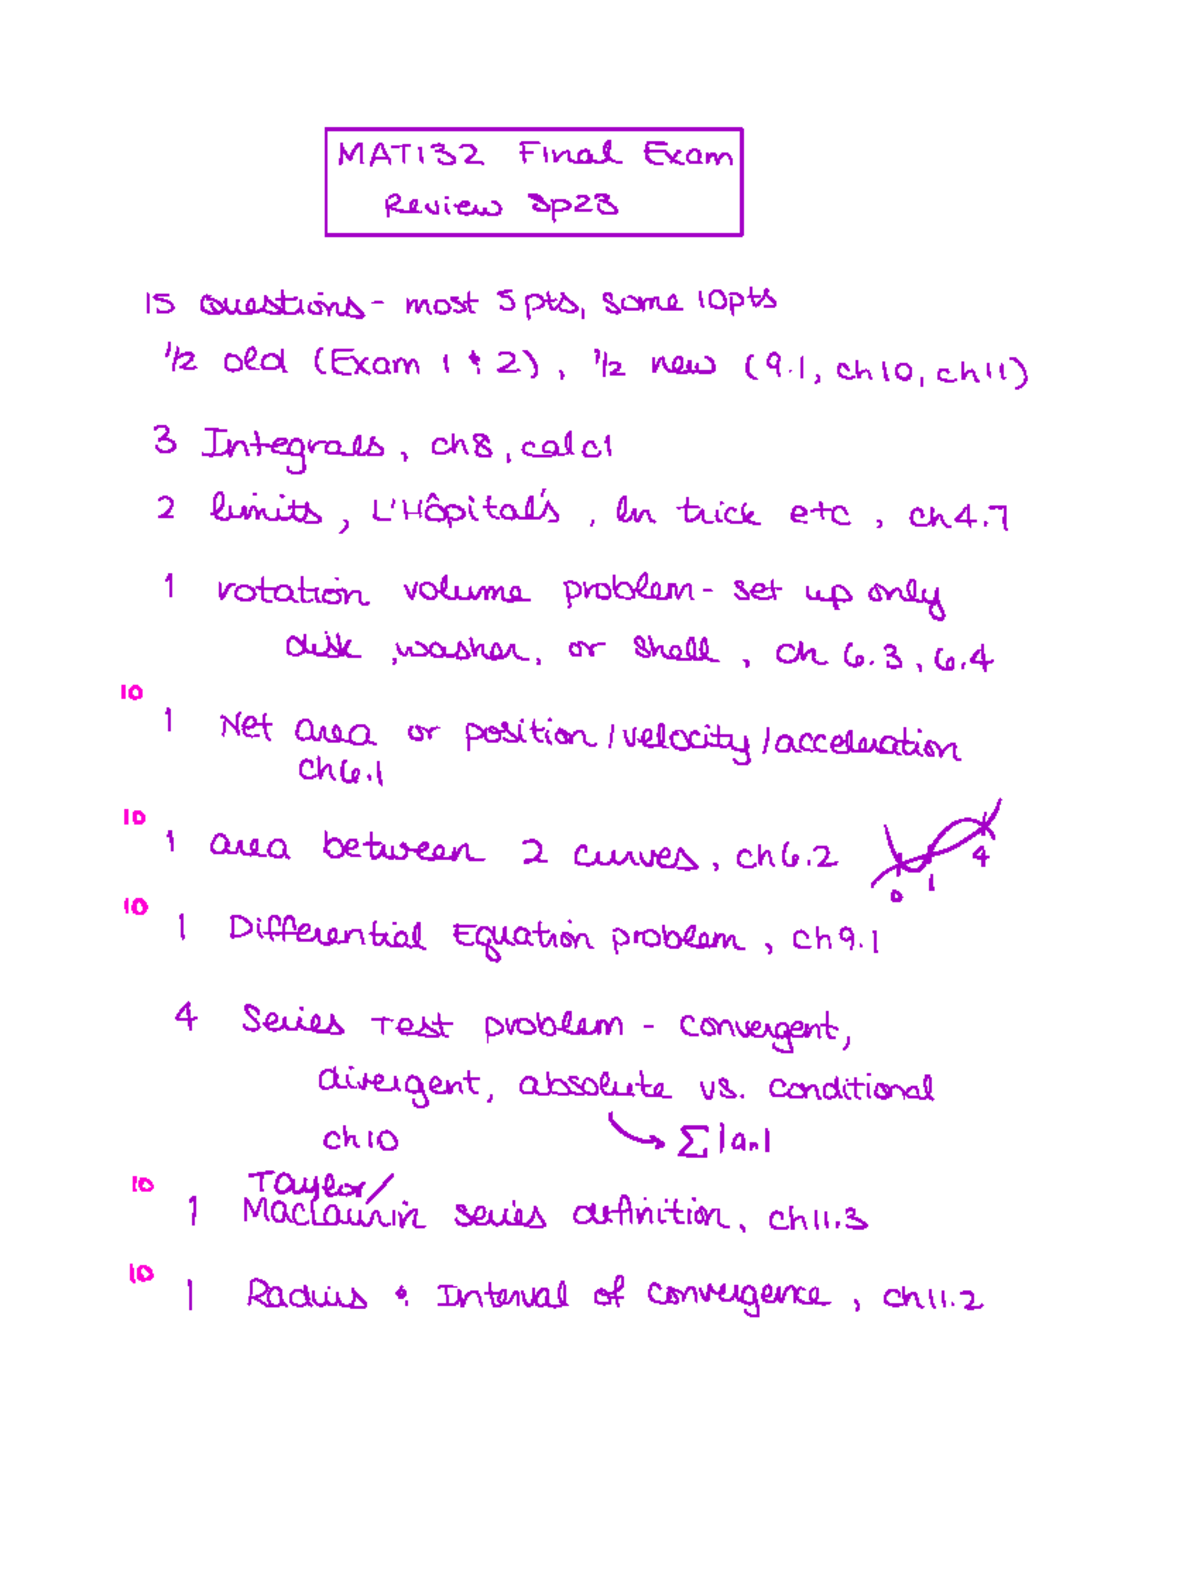 MAT132 Final Exam
Review Sp23
15 questions - most 5pts, some 10pts
1/2 old (Exam 1 & 2), 1/2 new (9.1, ch10, ch11)
3 Integrals, ch8, calc1
2 limits, L'Hôpital's, ln trick etc, ch4.7
1 rotation volume problem - set up only
disk, washer, or shell, ch 6.3, 6.4
10
1 Net area or position/velocity/acceleration
ch6.1
10
1 area between 2 curves, ch6.2
0 1 4
10
1 Differential Equation problem, ch9.1
4 Series Test problem - convergent,
divergent, absolute vs. conditional
ch10 → Σ|aₙ|
10 Taylor/
1 Maclaurin series definition, ch11.3
10
1 Radius & Interval of convergence, ch11.2